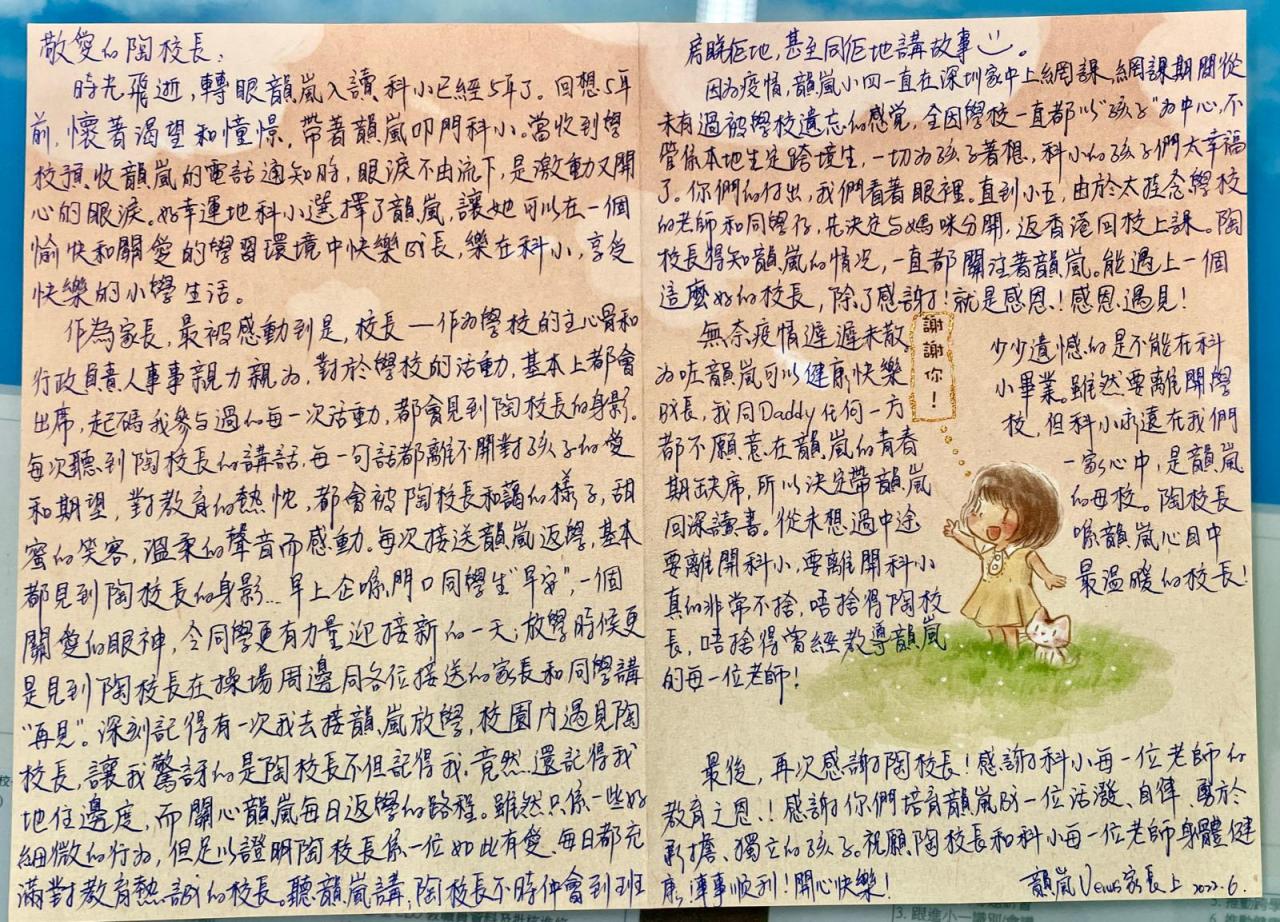 敬愛的陶校長：
時光飛逝，轉眼韻嵐入讀科小已經5年了。回想5年
前，懷著渴望和憧憬，帶著韻嵐叩門科小。當收到學
校預收韻嵐的電話通知時，眼淚不由流下，是激動又開
心的眼淚。好幸運地科小選擇了韻嵐，讓她可以在一個
愉快和關愛的學習環境中快樂成長，樂在科小，享受
快樂的小學生活。
作為家長，最被感動到是，校長一作為學校的主心骨和
行政負責人事事親力親為，對於學校的活動，基本上都會
出席，起碼我參与過的每一次活動，都會見到陶校長的身影。
每次聽到陶校長的講話，每一句話都離不開對孩子的愛
和期望，對教育的熱忱，都會被陶校長和藹的樣子，甜
蜜的笑容，溫柔的聲音而感動。每次接送韻嵐返學，基本
都見到陶校長的身影…早上企喺門口同學生“早安”，一個
關愛的眼神，令同學更有力量迎接新的一天；放學時候更
是見到陶校長在操場周邊同各位接送的家長和同學講
“再見”。深刻記得有一次我去接韻嵐放學，校園內遇見陶
校長，讓我驚訝的是陶校長不但記得我，竟然還記得我
地住邊度，而關心韻嵐每日返學的路程。雖然只係一些好
細微的行為，但足以證明陶校長係一位如此有愛、每日都充
滿對教育熱誠的校長。聽韻嵐講，陶校長不時仲會到班
房睇佢地，甚至同佢地講故事。
因為疫情，韻嵐小四一直在深圳家中上網課，網課期間從
未有過被學校遺忘的感覺，全因學校一直都以“孩子”為中心，不
管係本地生定跨境生，一切為孩子著想，科小的孩子們太幸福
了。你們的付出，我們看著眼裡。直到小五，由於太挂念學校
的老師和同學仔，先決定与媽咪分開，返香港回校上課。陶
校長得知韻嵐的情況，一直都關注著韻嵐。能遇上一個
這麼好的校長，除了感謝！就是感恩！感恩遇見！
無奈疫情遲遲未散。
為咗韻嵐可以健康快樂
成長，我同Daddy任何一方
都不願意在韻嵐的青春
期缺席，所以決定帶韻嵐
回深讀書。從未想過中途
要離開科小，要離開科小
真的非常不捨，唔捨得陶校
長，唔捨得曾經教導韻嵐
的每一位老師！
謝謝你！
少少遺憾的是不能在科
小畢業。雖然要離開學
校，但科小永遠在我們
一家心中，是韻嵐
的母校。陶校長
喺韻嵐心目中
最溫暖的校長！
最後，再次感謝陶校長！感謝科小每一位老師的
教育之恩！感謝你們培育韻嵐成一位活潑、自律、勇於
承擔、獨立的孩子。祝願陶校長和科小每一位老師身體健
康！事事順利！開心快樂！
韻嵐Venus家長上 2022.6.